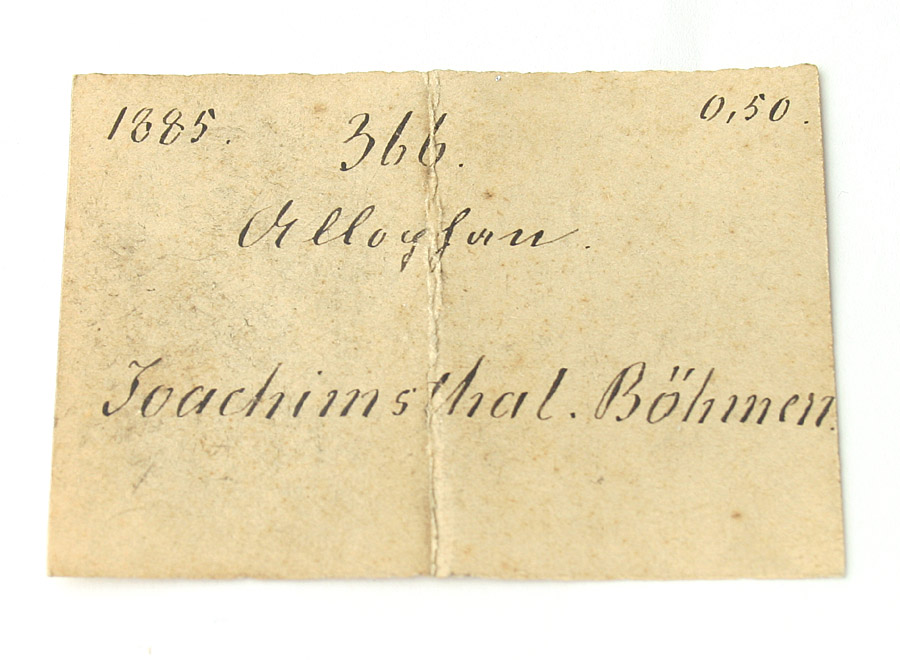 1885. 366. 0,50.
Allophan.
Joachimsthal. Böhmen.